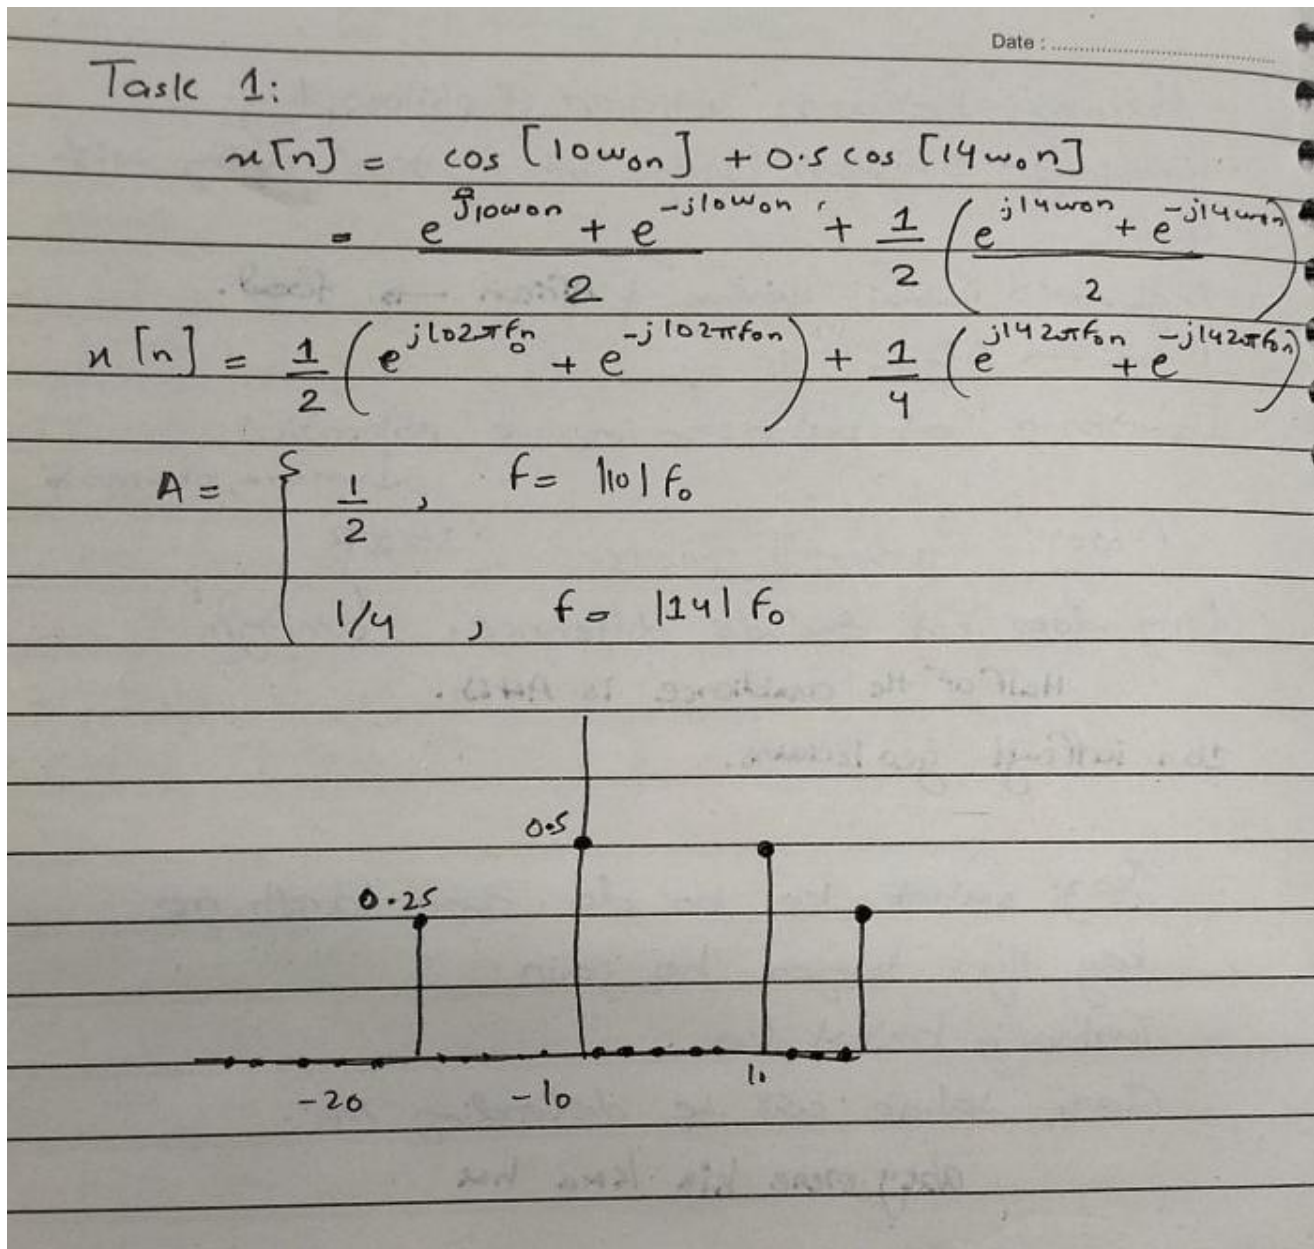 Date : ........................
Task 1:
x[n] = cos [10ω₀n] + 0.5 cos [14ω₀n]
= (e^{j10ω₀n} + e^{-j10ω₀n})/2 + 1/2 ((e^{j14ω₀n} + e^{-j14ω₀n})/2)
x[n] = 1/2 (e^{j102πf₀n} + e^{-j102πf₀n}) + 1/4 (e^{j142πf₀n} + e^{-j142πf₀n})
A = { 1/2 , f = |10| f₀
1/4 , f = |14| f₀
0.5
0.25
-20 -10 10